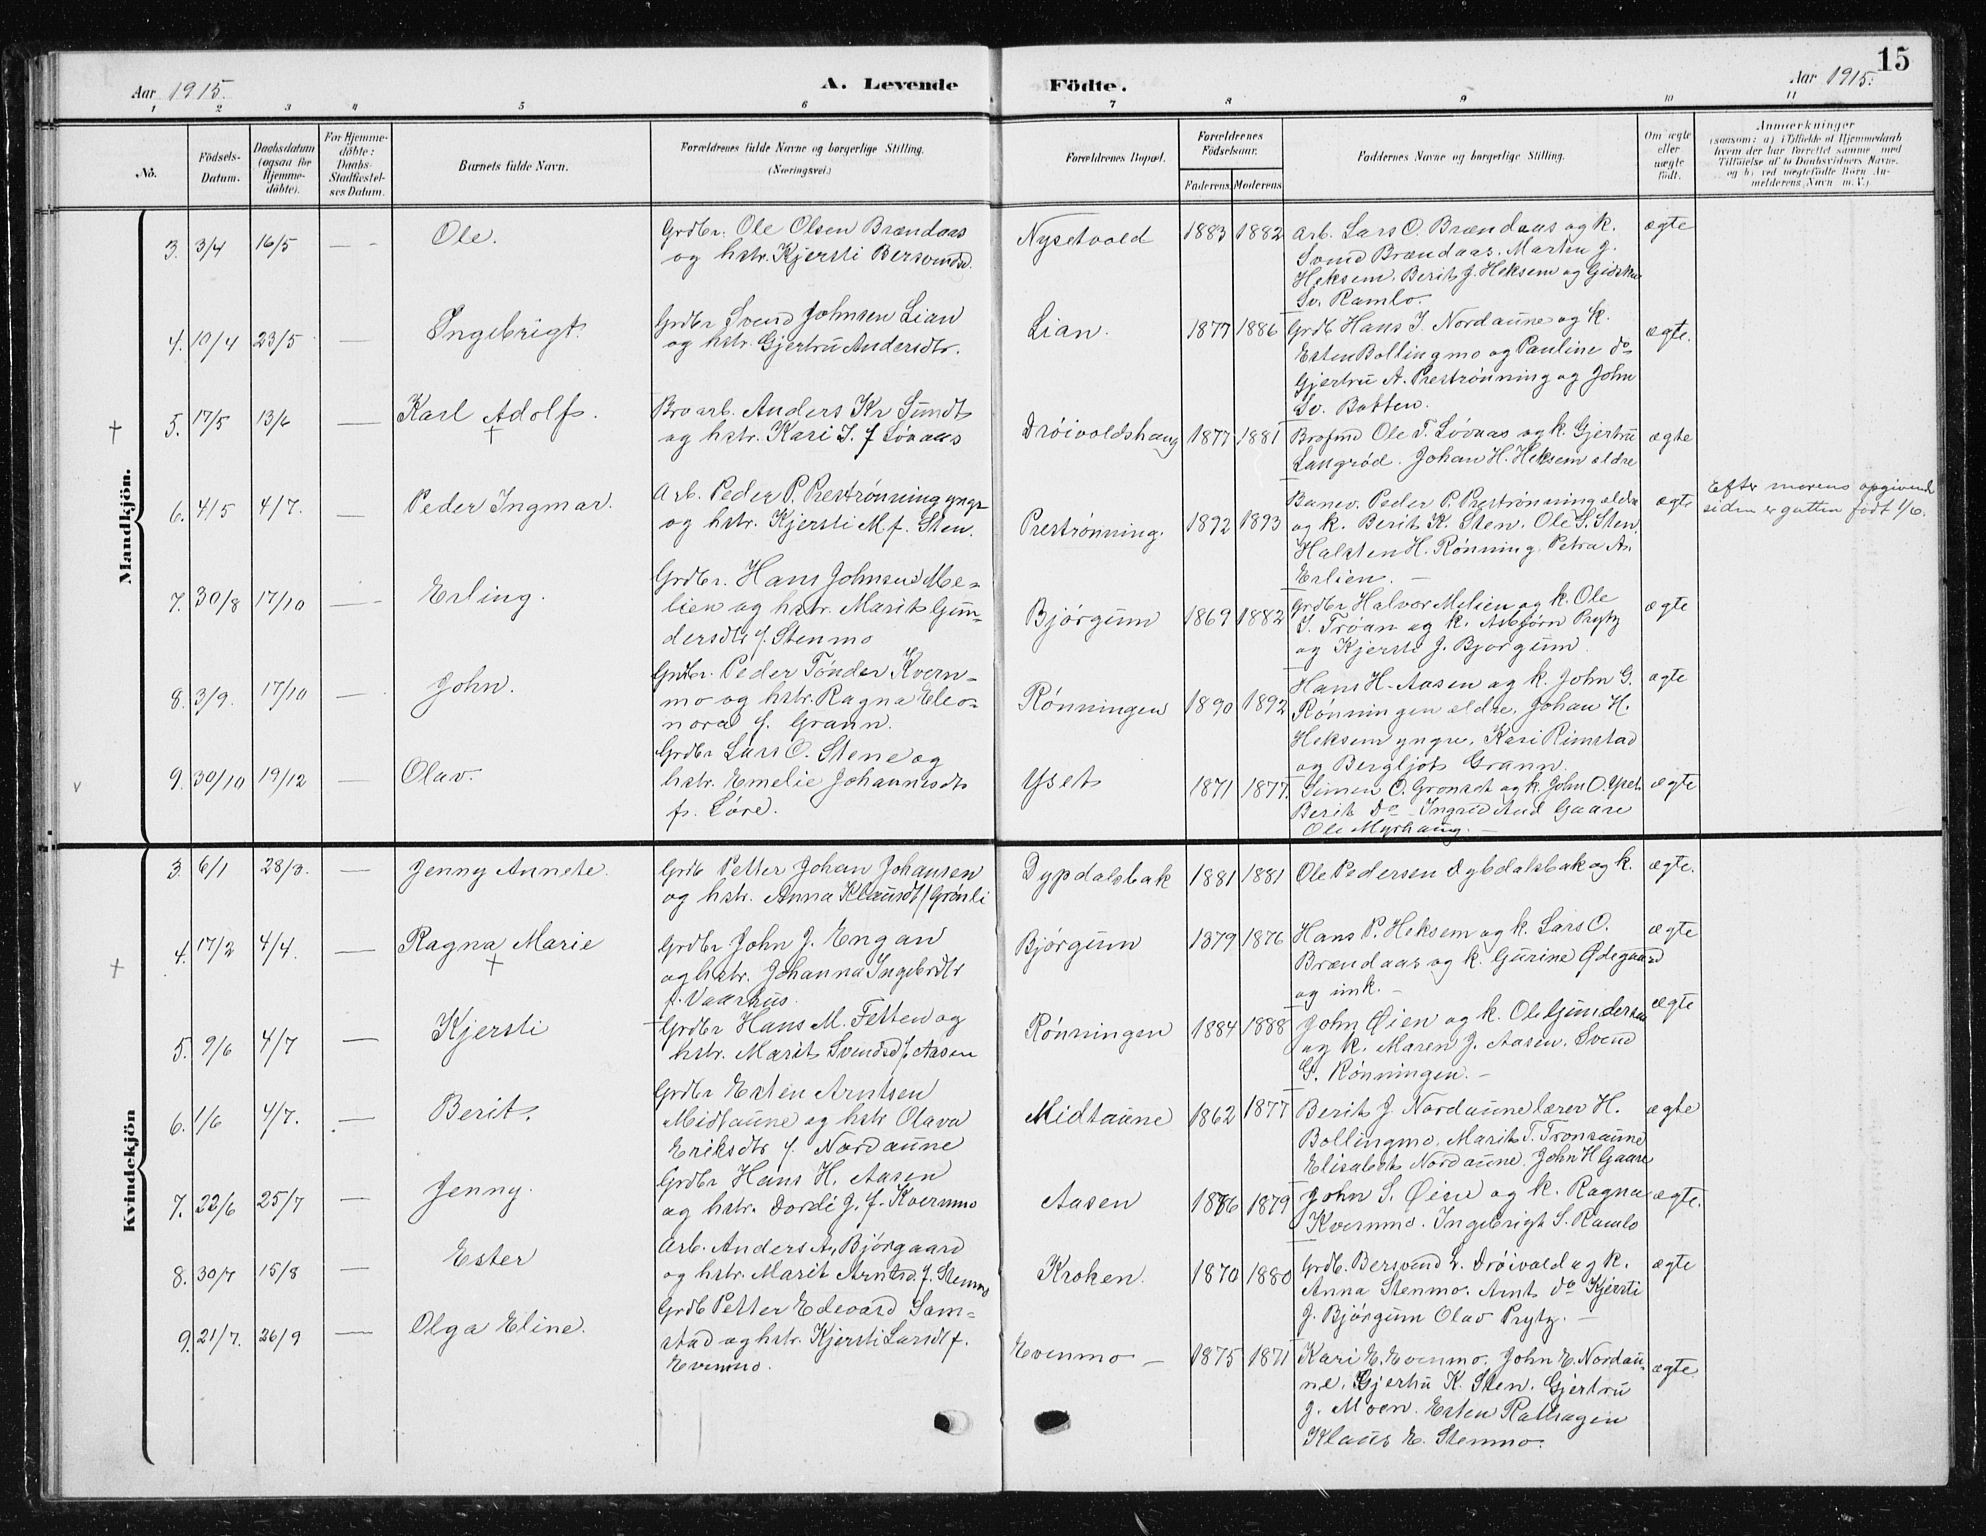 15
Aar 1915. A. Levende Födte. Aar 1915.
1 2 3 4 5 6 7 8 9 10 11
No. Födsels-Datum. Daabsdatum (ogsaa for Hjemmedöbte). For Hjemmedöbte: Daabs-Stadfæstelses Datum. Barnets fulde Navn. Forældrenes fulde Navne og borgerlige Stilling. (Næringsvei.) Forældrenes Bopæl. Forældrenes Födselsaar. Faderens. Moderens. Faddernes Navne og borgerlige Stilling. Om ægte eller uægte födt. Anmærkninger (saasom: a) i Tilfælde af Hjemmedaab hvem der har forrettet samme, med Tilföielse af to Daabsvidners Navne, og b) ved uægtefödte Börn Anmelderens Navn m. V.)
Mandkjön.
3. 3/4 16/5 — Ole. Grdbr. Ole Olsen Brændaas Nysetvold 1883 1882 Arb. Lars O. Brændaas og k. ægte
og hstr. Kjersti Bersvendsd. Svend Brændaas. Marten J.
Heksem. Berit J. Heksem og
Sv. Ramlo.
4. 10/4 23/5 — Ingebrigt. Grdbr Svend Johnsen Lian Lian. 1877 1886 Grdb Hans J. Nordaune og k. ægte.
og hstr. Gjertru Andersdtr. Esten Bollingmo og Pauline do
Gjertru A. Prestrønning og John
Sv. Botten.
† 5. 17/5 13/6 — Karl Adolf. † Broarb. Anders Kr Sundt Drøivoldshaug 1877 1881 Ole T. Løvaas og k. Gjertru ægte
og hstr. Kari J. f Løvaas Langrød. Johan H. Heksem ældre
6. 4/5 4/7. — Peder Ingmar. Arb. Peder P. Prestrønning yngr Prestrønning. 1892 1893 Banev. Peder P. Prestrønning ældre ægte Efter morens opgivende
og hstr. Kjersti M. f. Sten. og k. Berit K. Sten. Ole S. Sten. siden er gutten født 1/6.
Halsten H. Rønning. Petra An.
Erlien. —
7. 30/8 17/10 — Erling. Grdbr. Hans Johnsen Me- Bjørgum 1869 1882 Grdbr Halvor Melien og k. Ole ægte
lien og hstr. Marit Gun- S. Trøan og k. Asbjørn Prytz
dersdtr f. Stenmo og Kjersti J. Bjorgum.
8. 3/9. 17/10 — John. Grdbr. Peder Tønder Kvern- Rønningen 1890 1892 Hans H. Aasen og k. John G. ægte
mo og hstr. Ragna Eleo- Rønningen ældre. Johan H.
nora f. Grann. Heksem yngre. Kari Rimstad
og Bergljot Grann.
v 9. 30/10 19/12 — Olav. Grdbr Lars O. Stene og Yset 1871 1877. Simen O. Gronset og k. John O. Yset. ægte
hstr. Emelie Johannesdtr Berit do Ingrid And Gaare
f. Løre. Ole Myrhaug. —
Kvindekjön
3. 6/1 28/3. — Jenny Annete. Grdb Petter Johan Johansen Dypdalsbak 1881 1881 Ole Pedersen Dybdalsbak og k. ægte.
og hstr. Anna Klausdt f Grønli
† 4. 17/2 4/4. — Ragna Marie † Grdbr John J. Engan Bjørgum 1879 1876 Hans P. Heksem og k. Lars O. ægte
og hstr. Johanna Ingebrdtr Brændaas og k. Gurine Ødegaard
f. Vaarhus. og imk. —
5. 9/6 4/7 — Kjersti Grdbr Hans M. Fetten og Rønningen 1884 1888 John Øien og k. Ole Gundersen ægte
hstr. Marit Svendsd f. Aasen og k. Maren J. Aasen. Svend
G. Rønningen. —
6. 1/6 4/7. — Berit. Grdbr Esten Arntsen Midtaune 1862 1877 Berit J Nordaune lærer H. ægte
Midtaune og hstr Olava Bollingmo. Marit T. Tronsaune
Eriksdtr f. Nordaune Elisabet Nordaune. John H Gaare
7. 22/6 25/7 — Jenny. Grdbr Hans H. Aasen Aasen 1876 1879 John S. Øine og k. Ragna ægte.
og hstr. Dordi J. f. Kvernmo Kvernmo. Ingebrigt S. Ramlo
8. 30/7 15/8 — Ester Arb. Anders A. Bjørgaard Kroken. 1870 1880 Grdb. Bersvend L. Drøivold og k. ægte
og hstr. Marit Arntsd. f. Stenmo Anna Stenmo. Arnt do Kjersti
J. Bjørgum Olav Prytz. —
9. 21/7. 26/9 — Olga Eline. Grdb Petter Edevard Sam- Evenmo — 1875 1871 Kari E. Evenmo. John E. Nordau- ægte
stad og hstr. Kjersti Larsdt f. ne. Gjertru K. Sten. Gjertru
Evenmo. J. Moen. Esten Rathagen
Klaus E. Stenmo.